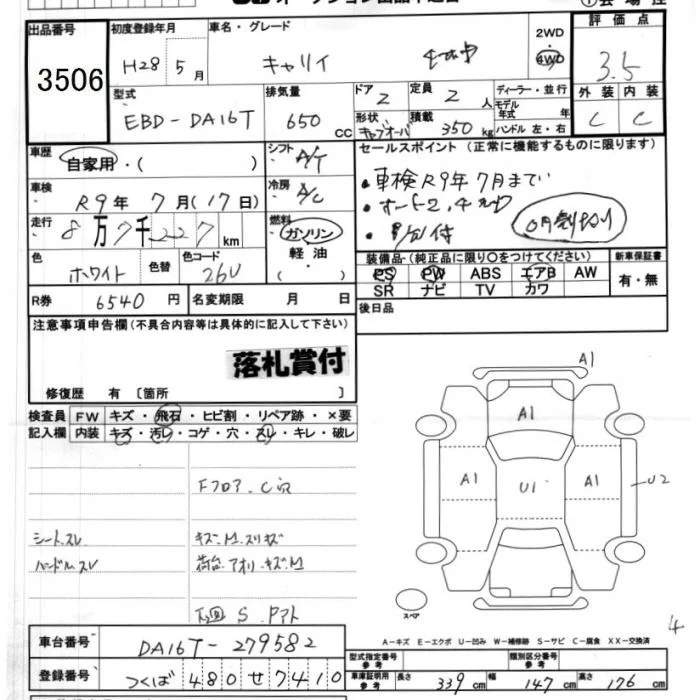 出品番号 3506
初度登録年月 H28 5月
車名・グレード キャリイ
2WD 4WD
評価点 3.5
外装 内装 C C
型式 EBD-DA16T
排気量 650 CC
ドア 2
形状 キャブオーバ
定員 2 人
積載 350 kg
ディーラー・並行
モデル年式 年
ハンドル 左・右
車歴 自家用・( )
シフト A/T
車検 R9年 7月(17日)
冷房 A/C
走行 8万7千227km
燃料 ガソリン
軽油
・( )
色 ホワイト 色替 色コード 26U
R券 6540円 名変期限 月 日
セールスポイント (正常に機能するものに限ります)
・車検R9年7月まで
・オート2,4切
・ 付
装備品・(純正品に限り〇をつけてください) 新車保証書
PS PW ABS エアB AW 有・無
SR ナビ TV カワ
後日品
注意事項申告欄(不具合内容等は具体的に記入して下さい)
落札賞付
修復歴 有〔箇所 〕
検査員記入欄
FW キズ・飛石・ヒビ割・リペア跡・×要
内装 キズ・汚レ・コゲ・穴・スレ・キレ・破レ
Fフロア、C
シートスレ キズ.M.スリキズ
ハンドルスレ 荷台.アオリ.キズ.M
下回 S.Pアト
A1
A1
A1 U1 A1 U2
スペア
4
A-キズ E-エクボ U-凹み W-補修跡 S-サビ C-腐食 XX-交換済
車台番号 DA16T-279582
登録番号 つくば 480 せ 7410
型式指定番号 参考 類別区分番号 参考
車庫証明用 参考 長さ 339 cm 幅 147 cm 高さ 176 cm